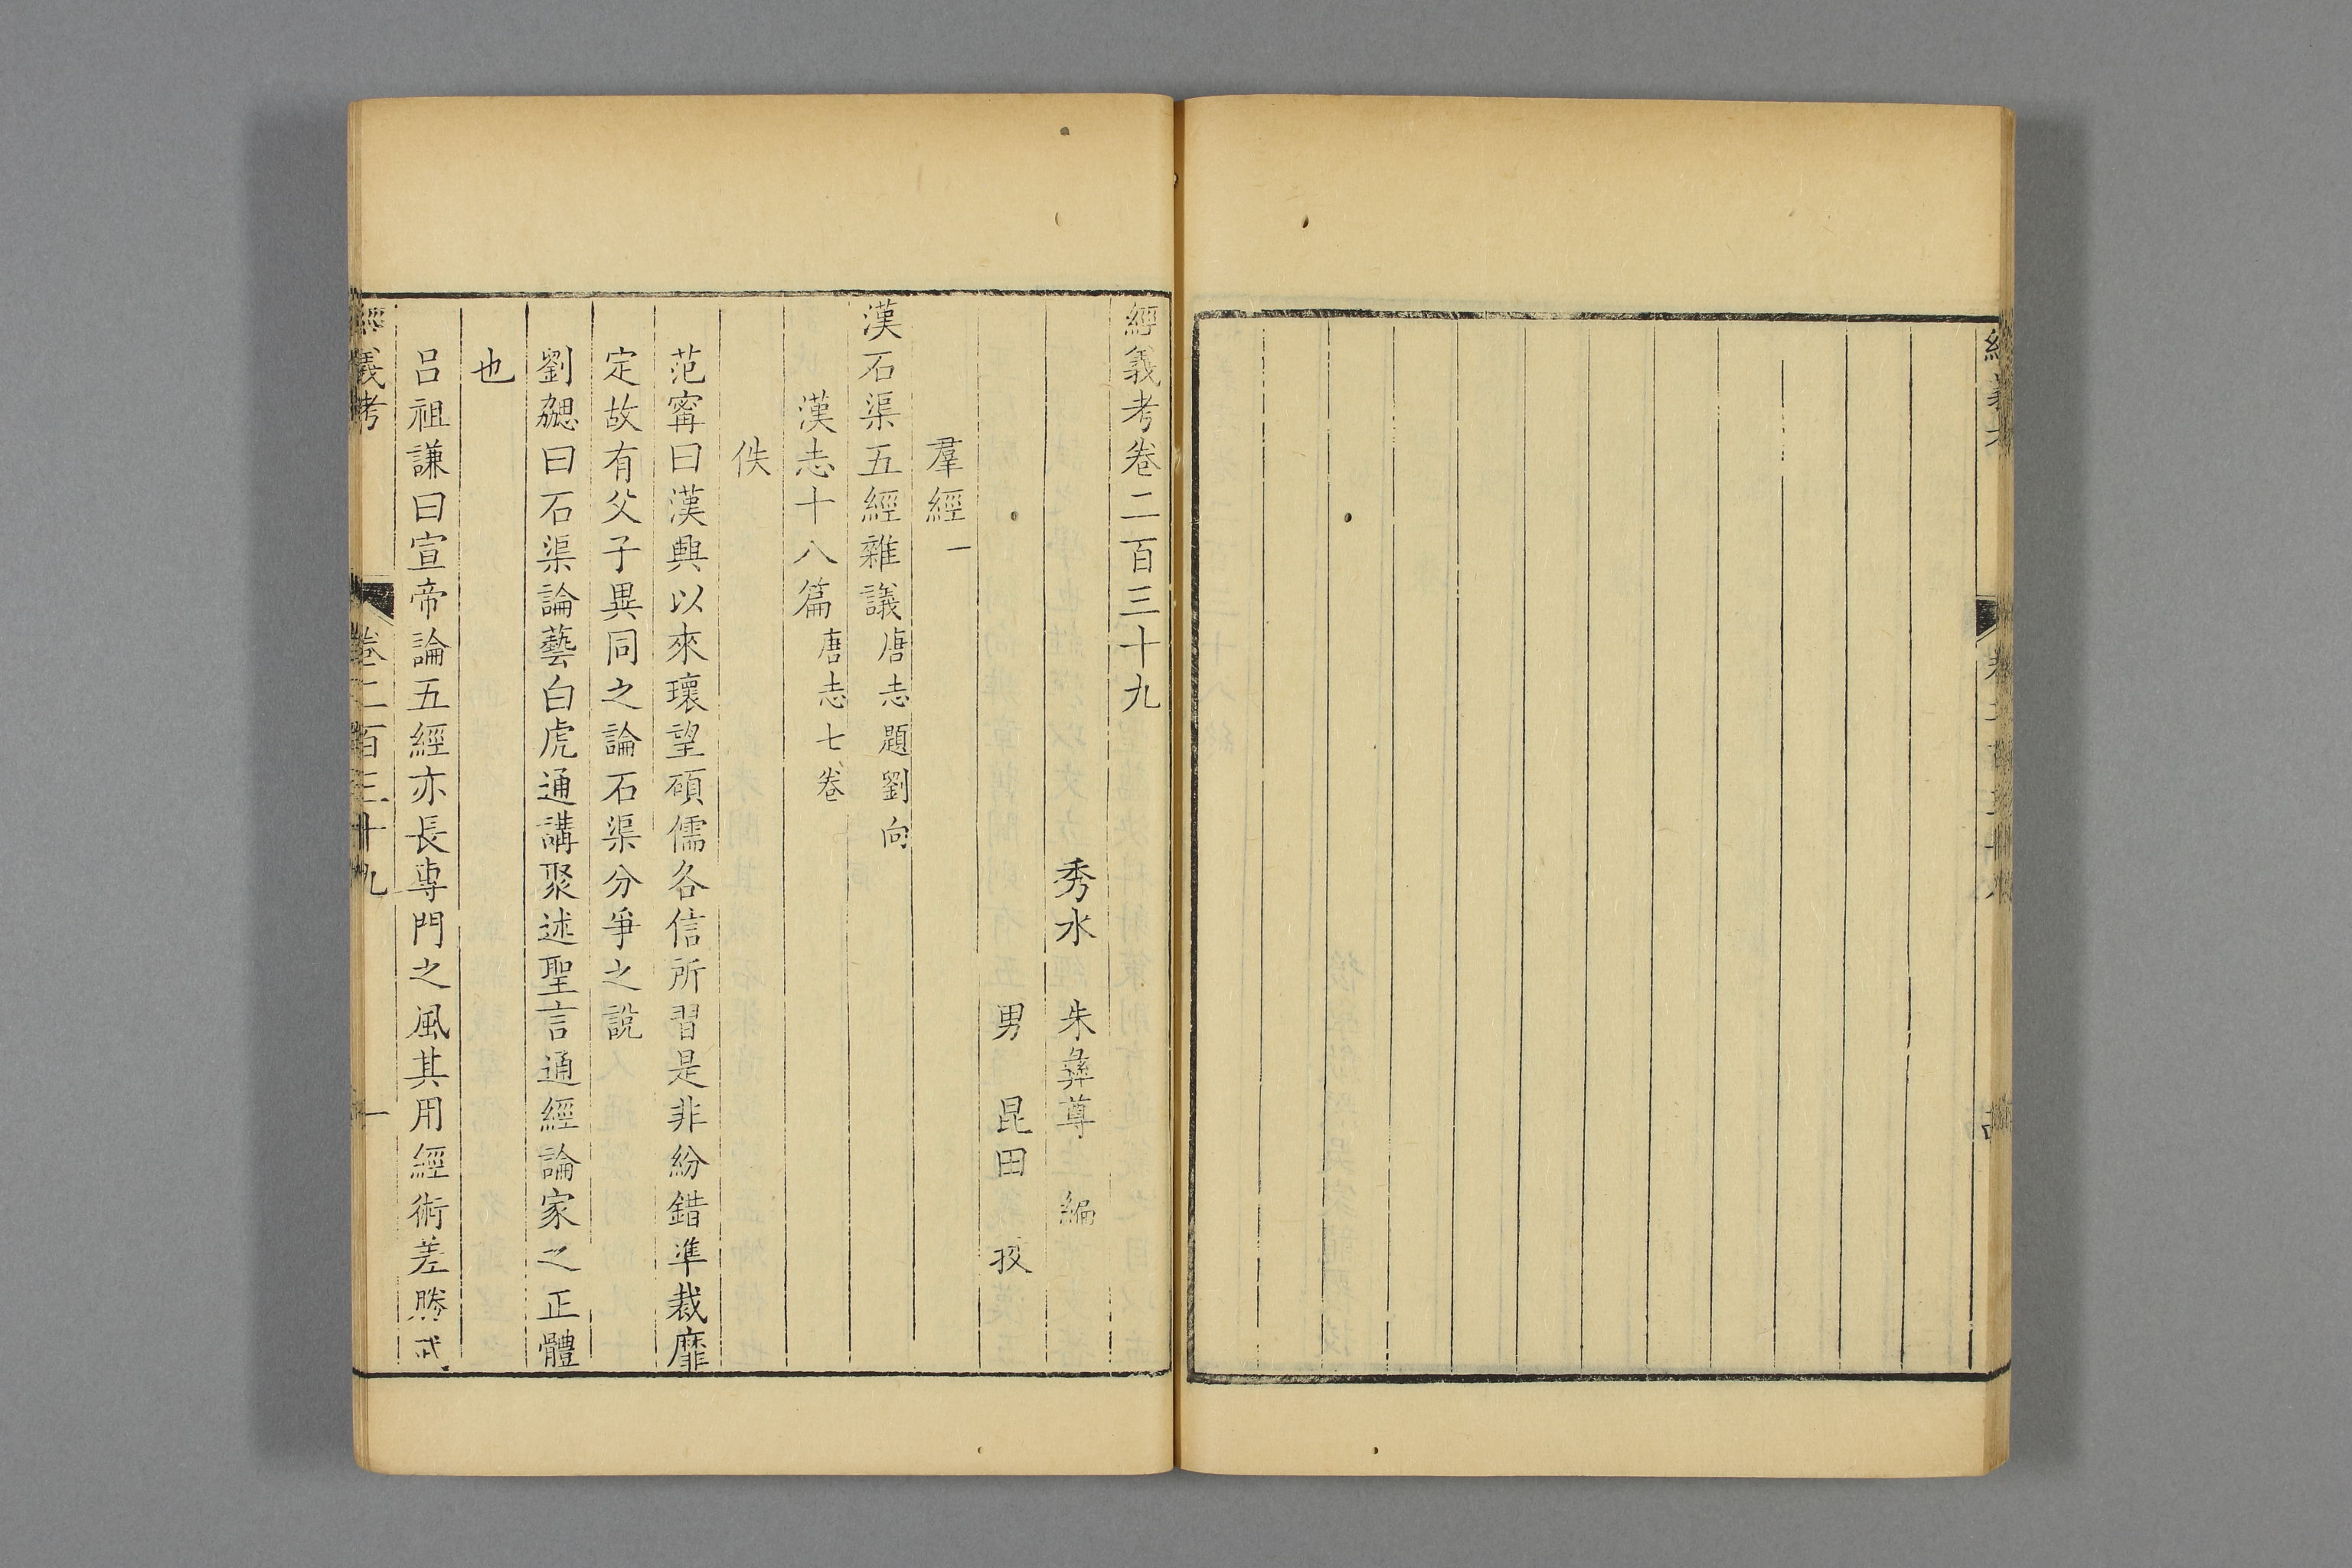 經義考卷二百三十九
秀水 朱彝尊 編
男 昆田 挍
羣經一
漢石渠五經雜議唐志題劉向
漢志十八篇唐志七卷
佚
范甯曰漢興以來瓌望碩儒各信所習是非紛錯準裁靡
定故有父子異同之論石渠分爭之說
劉勰曰石渠論藝白虎通講聚述聖言通經論家之正體
也
呂祖謙曰宣帝論五經亦長專門之風其用經術差勝武
經義考 卷二百三十九 一